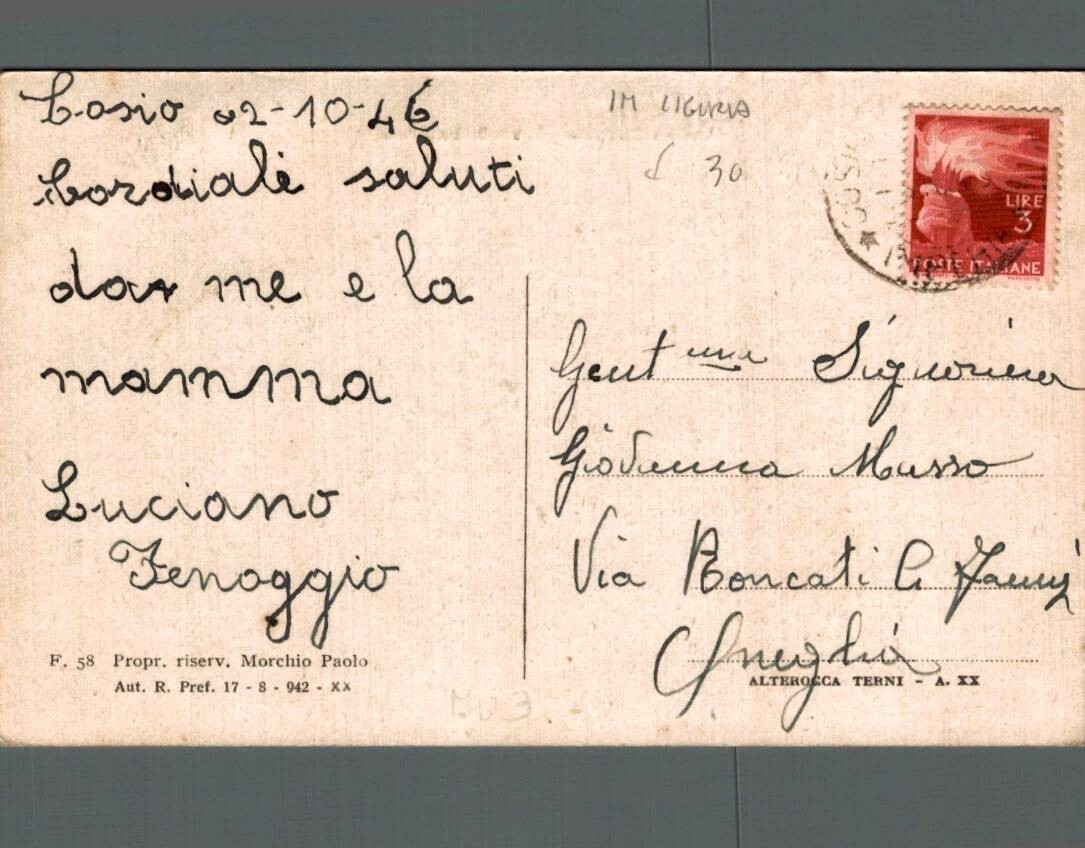 Cosio 02-10-46
Cordiale saluti
dar me e la
mamma
Luciano
Fenoggio
F. 58 Propr. riserv. Morchio Paolo
Aut. R. Pref. 17 - 8 - 942 - XX
IM LIGURIA
£ 30
COS
LIRE
3
POSTE ITALIANE
Gent ma Signorina
Giovanna Musso
Via Roncati
Oneglia
ALTEROCCA TERNI - A. XX